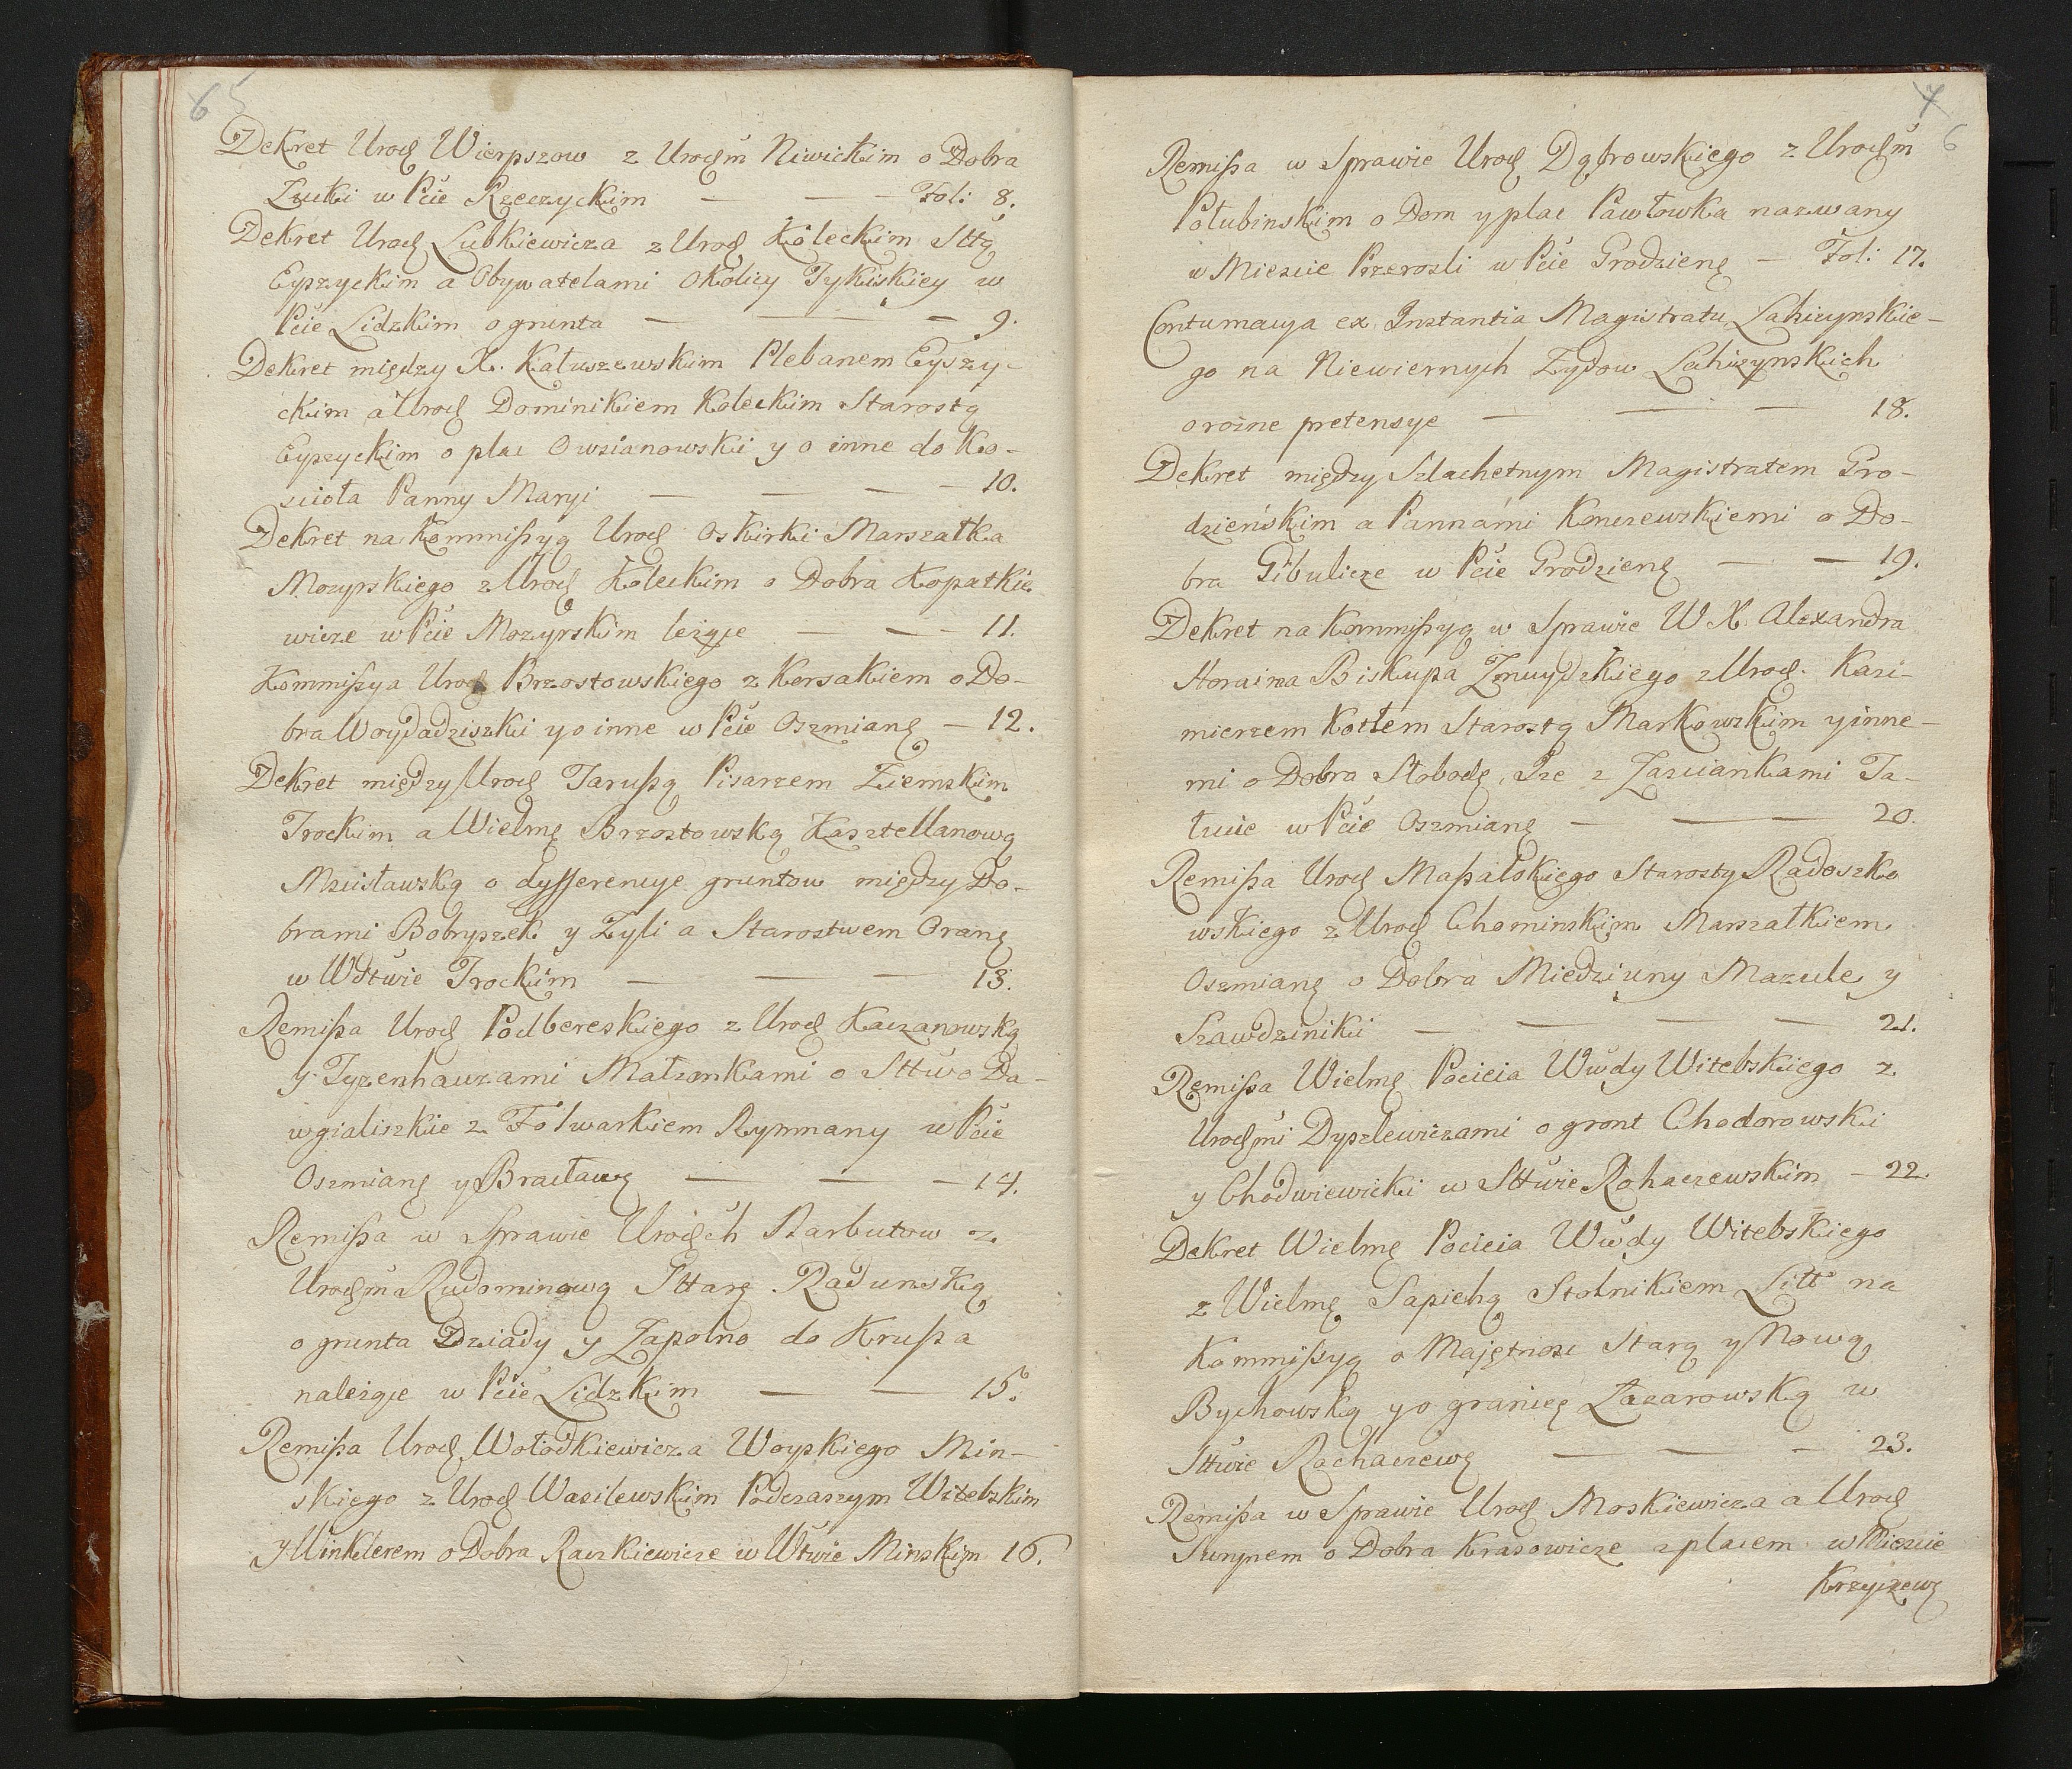 6 5
Dekret Urod Wierpszow z Urodm Niwickim o Dobra
Zucki w Pcie Rzeczyckim — — — Fol: 8.
Dekret Urod Lubkiewicza z Urod Koleckim Sttą
Eyszyckim a Obywatelami Okolicy Tykiskiey w
Pcie Lidzkim o grunta — — — 9.
Dekret między X. Kałuszewskim Plebanem Eyszy-
ckim a Urod Dominikiem Koleckim Starostą
Eyszyckim o plac Owsianowski y o inne do Ko-
scioła Panny Maryi — — — — 10.
Dekret na Kommissyą Urod Oskirki Marszałka
Mozyrskiego z Urod Koleckim o Dobra Kopatkie
wicze w Pcie Mozyrskim leżące — — — 11.
Kommissya Urod Brzostowskiego z Korsakiem o Do-
bra Woydadziszki y o inne w Pcie Oszmianę — 12.
Dekret między Urod Jarussą Pisarzem Ziemskim
Trockim a Wielmę Brzostowską Kasztellanową
Mscisławską o dyfferencye gruntow między Do-
brami Bobryszek y Zyli a Starostwem Oranę
w Wdtwie Trockim — — — 13.
Remissa Urod Podbereskiego z Urod Kaczanowską
y Tyzenhauzami Małżonkami o Sttwo Da-
wgialiszkie z Folwarkiem Rymmany w Pcie
Oszmianę y Bracławę — — — 14.
Remissa w Sprawie Urodch Narbutow z
Urodm Rudominową Sttarę Raduńską
o grunta Dziady y Zapolno do Krussa
należące w Pcie Lidzkim — — 15.
Remissa Urod Wołodkiewicza Woyskiego Min-
skiego z Urod Wasilewskim Podczaszym Witebskim
y Winklerem o Dobra Raczkiewicze w Wtwie Minskim 16.
7
6
Remissa w Sprawie Urod Dąbrowskiego z Urodm
Połubinskim o Dom y plac Pawłowka nazwany
w Miescie Przerosli w Pcie Grodzienę — Fol: 17.
Contumacya ex Instantia Magistratu Łahiszynskie-
go na Niewiernych Zydow Łahiszynskich
o rożne pretensye — — — 18.
Dekret między Szlachetnym Magistratem Gro-
dzieńskim a Pannami Konczewskiemi o Do-
bra Gibulicze w Pcie Grodzienę — — 19.
Dekret na Kommissyą w Sprawie W X. Alexandra
Horaina Biskupa Zmuydzkiego z Urod. Kazi-
mierzem Kotłem Starostą Markowskim y inne-
mi o Dobra Słobodę, Iże z Zasciankami Ta-
łucie w Pcie Oszmianę — — 20.
Remissa Urod Massalskiego Starosty Radoszko
wskiego z Urod Chominskim Marszałkiem
Oszmianę o Dobra Miedziuny Mazule y
Szawdziniki — — — — 21.
Remissa Wielmę Pocieia Wwdy Witebskiego z
Urodmi Dyszlewiczami o gront Chodorowski
y Chodwiewicki w Sttwie Rohaczewskim — 22.
Dekret Wielmę Pocieia Wwdy Witebskiego
z Wielmę Sapiehą Stolnikiem Litt na
Kommissyą o Majętnosc Starą y Nową
Bychowską y o granicę Łazarowską w
Sttwie Rachaczewę — — — 23.
Remissa w Sprawie Urod Moskiewicza a Urod
Suzynem o Dobra Krasowicze z placem w Miescie
Krzyczewę